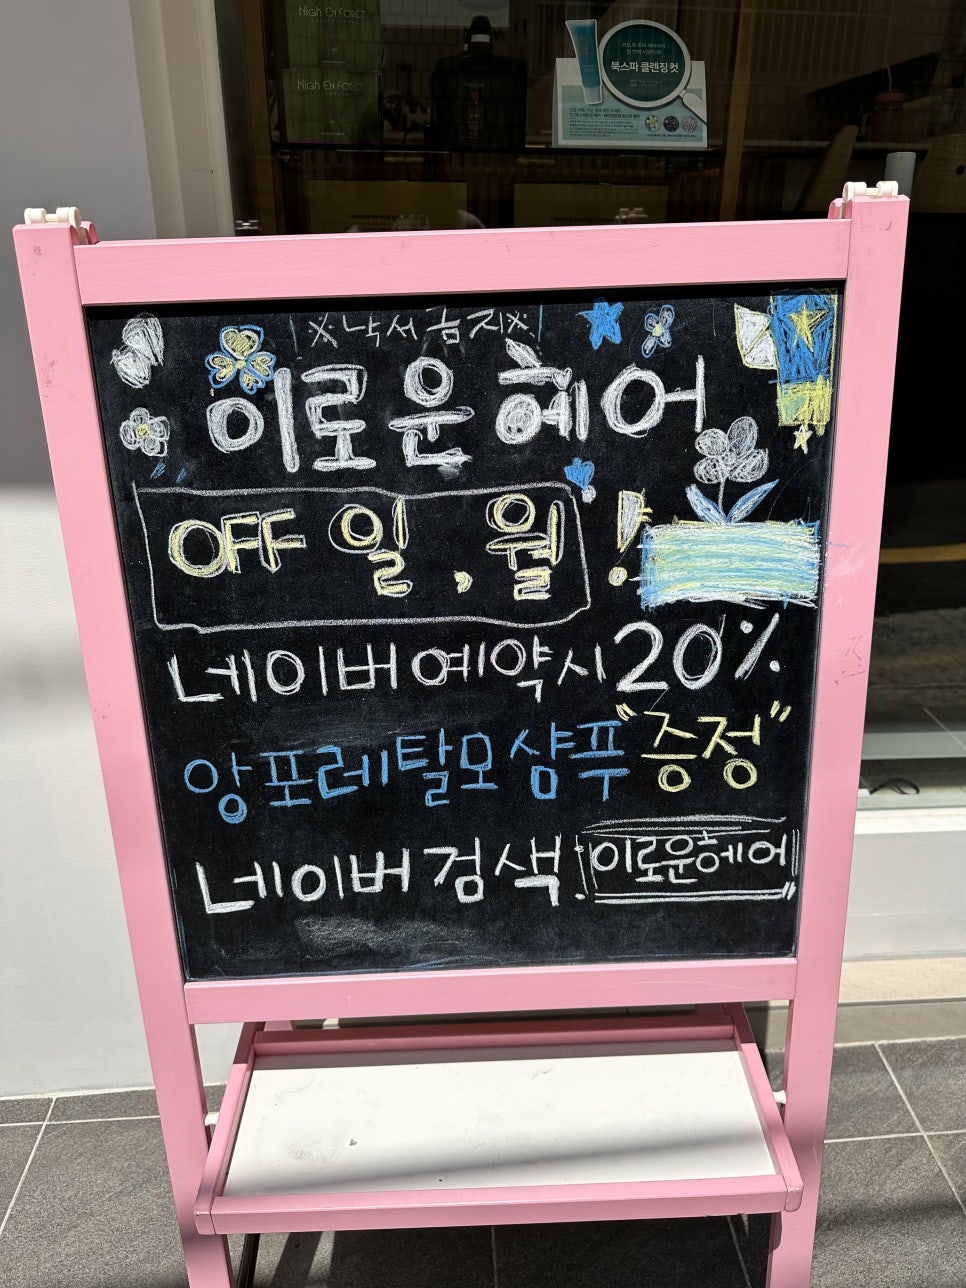 High En FORÊT
High En FORÊT
북스파 클렌징 컷
※낙서금지※
이로운 헤어
OFF 일, 월!
네이버 예약시 20%
앙포레 탈모 샴푸 "증정"
네이버 검색: 이로운헤어